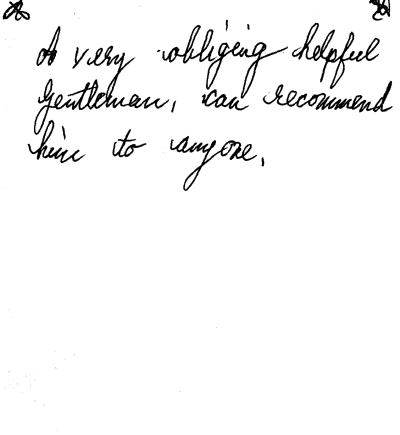 A very obliging helpful
gentleman, can recommend
him to anyone.